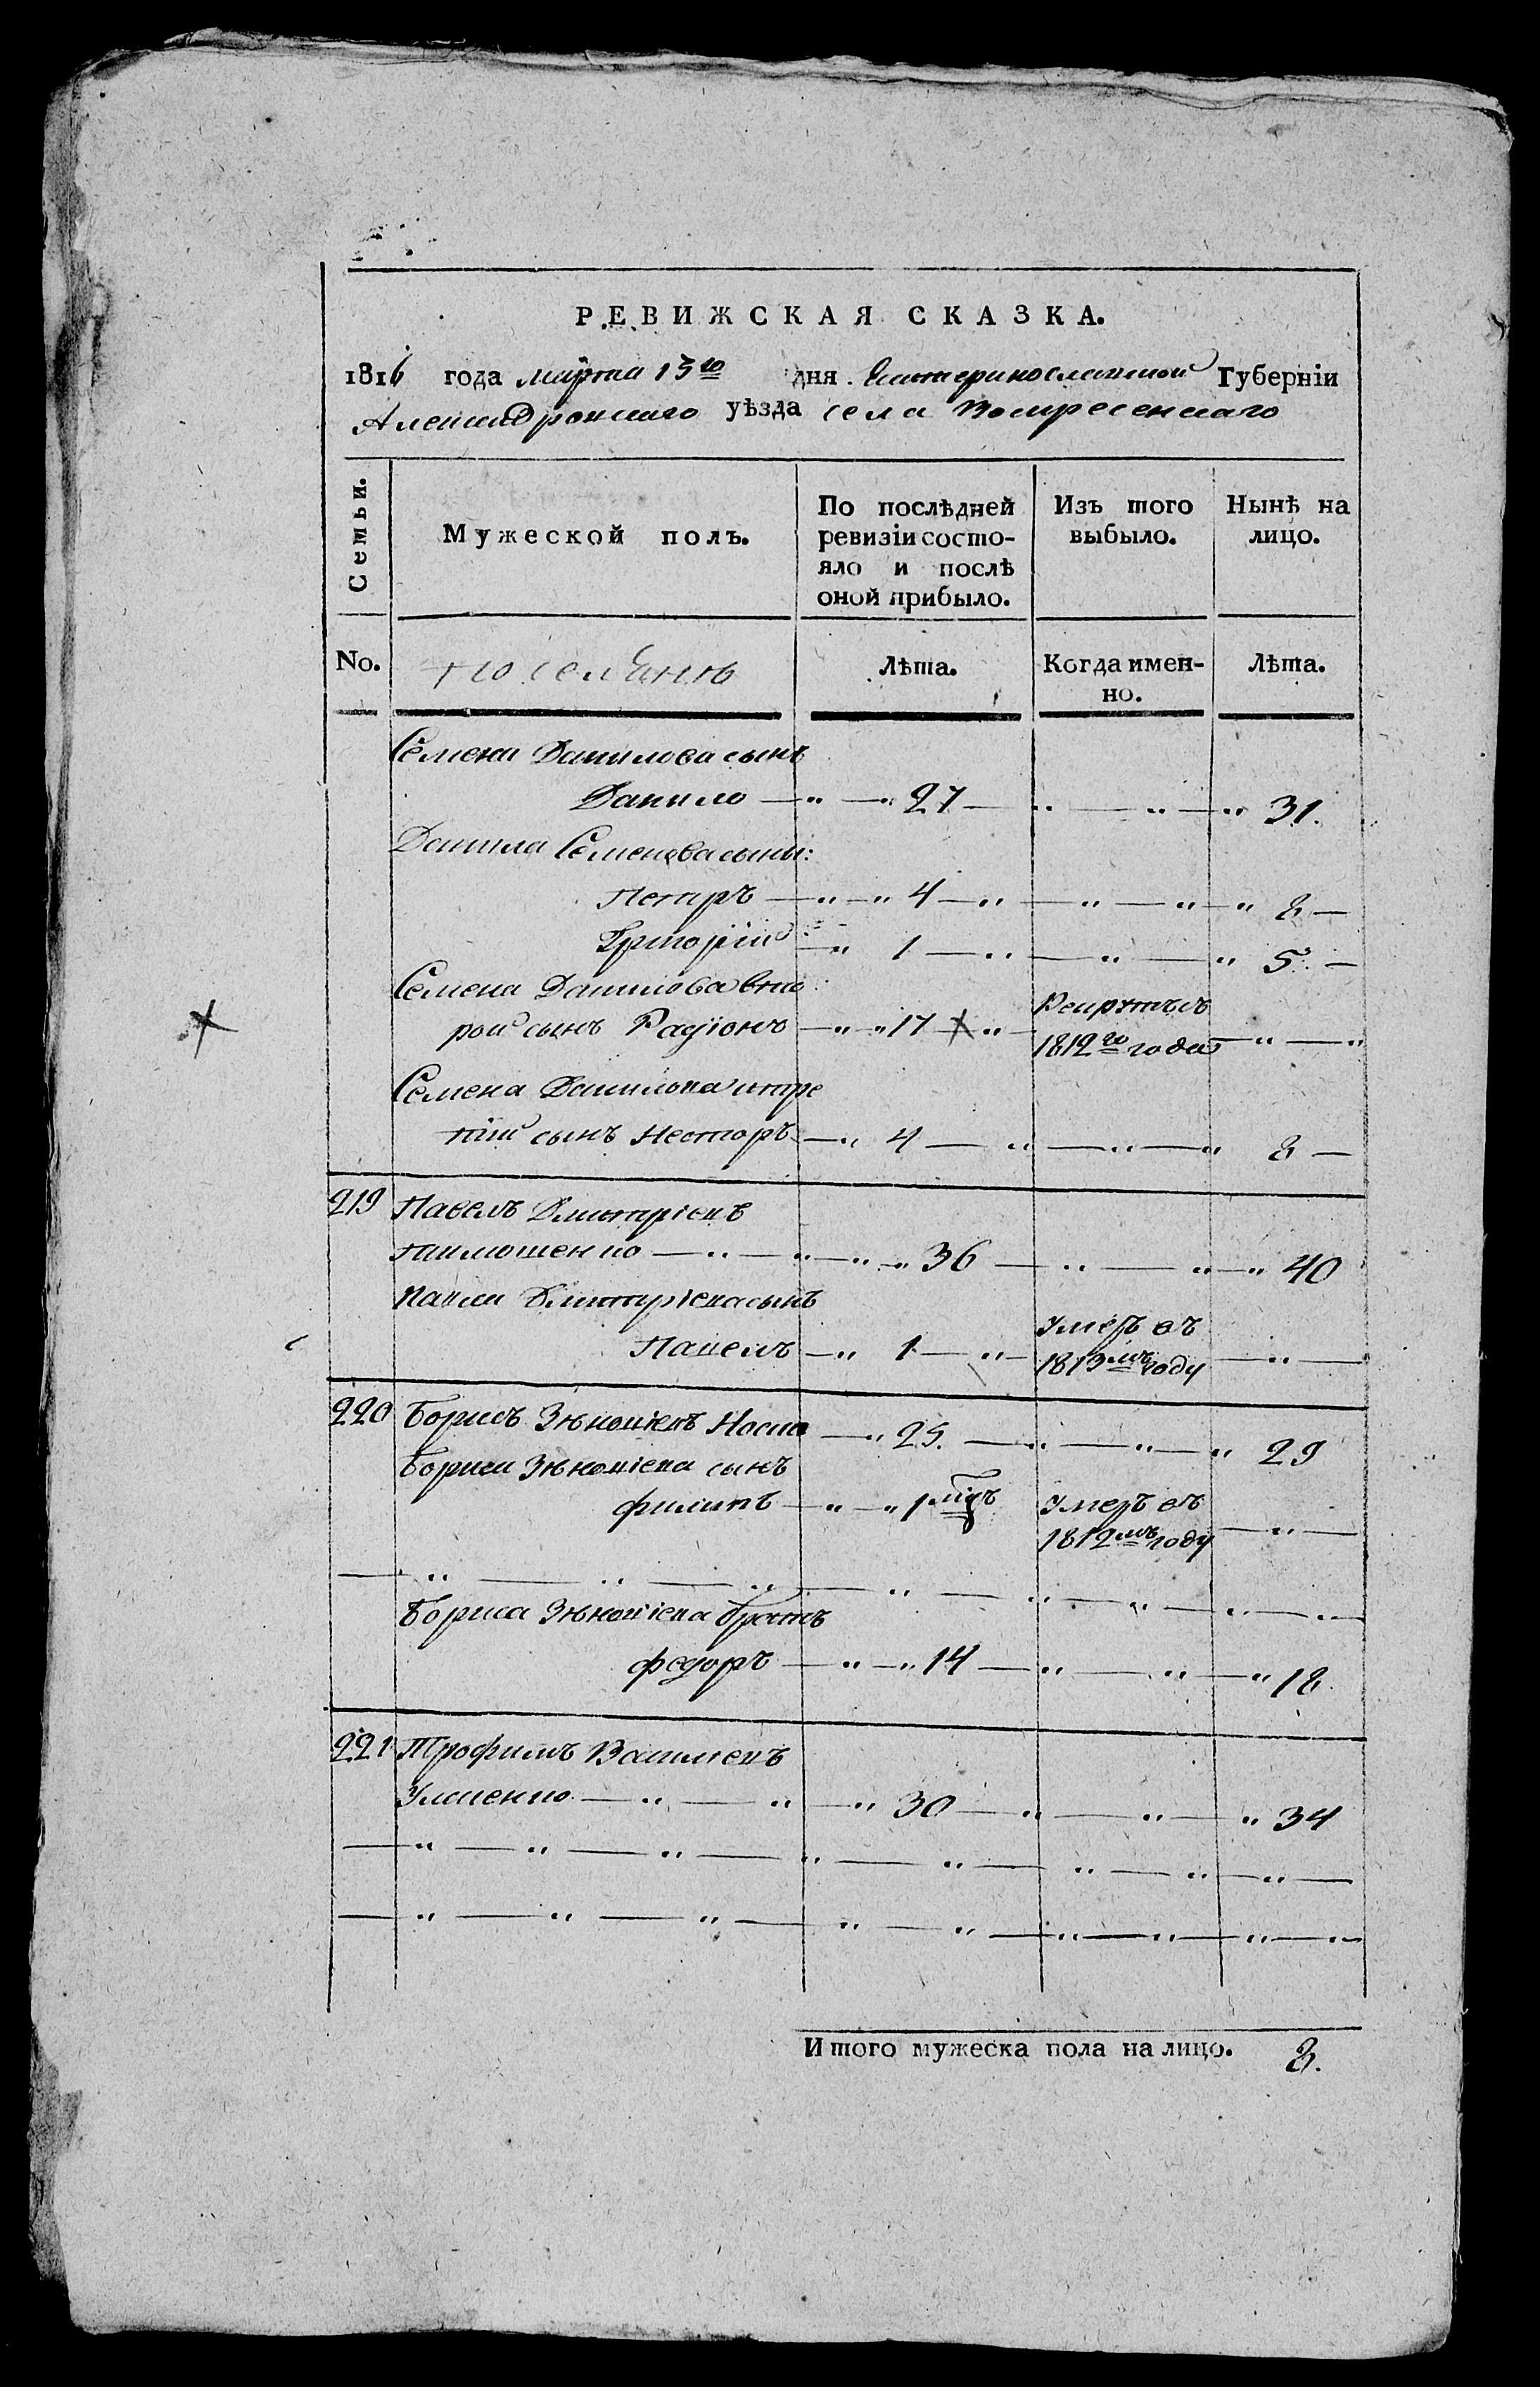 РЕВИЖСКАЯ СКАЗКА.
1816 года марта 13го дня Екатеринославской Губерніи
Александровского уѣзда села Воскресенскаго
Семьи.
Мужеской полъ.
По послѣдней ревизіи состояло и послѣ оной прибыло.
Изъ того выбыло.
Нынѣ на лицо.
No.
поселянъ
Лѣта.
Когда именно.
Лѣта.
Семена Данилова сынъ
Данило 27 31.
Данила Семенова сыны:
Петръ 4 8
Григорій 1 5
Семена Данилова вто
рой сынъ Радіонъ 17 Рекрутъ 1812го года
Семена Данилова тре
тій сынъ Несторъ 4 8
219 Павелъ Дмитріевъ
Тимошенко 36 40
Павла Дмитріева сынъ
Павелъ 1 Умеръ въ 1813мъ году
220 Борисъ Зѣновіевъ 25. 29
Бориса Зѣновіева сынъ
Филипъ 1 Умеръ въ 1812мъ году
Бориса Зѣновіева братъ
Федоръ 14 18
221 Трофимъ Васильевъ
30 34
Итого мужеска пола на лицо. 8.